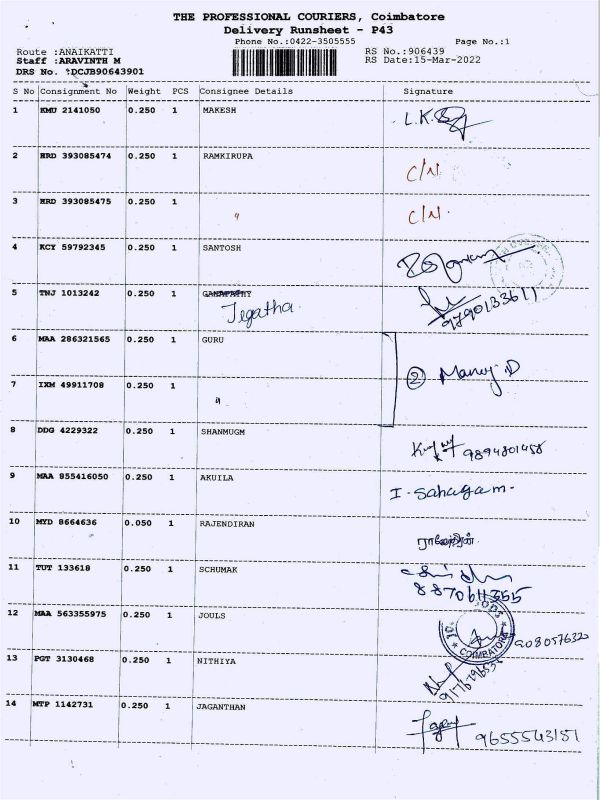 THE PROFESSIONAL COURIERS, Coimbatore
Delivery Runsheet - P43
Phone No.:0422-3505555 Page No.:1
Route :ANAIKATTI RS No.:906439
Staff :ARAVINTH M RS Date:15-Mar-2022
DRS No. :DCJB90643901
S No Consignment No Weight PCS Consignee Details Signature
1 KMU 2141050 0.250 1 MAKESH L.K.
2 HRD 393085474 0.250 1 RAMKIRUPA C/N
3 HRD 393085475 0.250 1 " C/N.
4 KCY 59792345 0.250 1 SANTOSH
5 TNJ 1013242 0.250 1 GANAPATHY
Jegatha 9790133611
6 MAA 286321565 0.250 1 GURU
② Manoj D
7 IXM 49911708 0.250 1 "
8 DDG 4229322 0.250 1 SHANMUGM
9894801458
9 MAA 855416050 0.250 1 AKUILA I. Sahagam.
10 MYD 8664636 0.050 1 RAJENDIRAN
11 TUT 133618 0.250 1 SCHUMAK
8870611355
12 MAA 563355975 0.250 1 JOULS
COIMBATORE 908057632
13 PGT 3130468 0.250 1 NITHIYA
14 MTP 1142731 0.250 1 JAGANTHAN
9655543151